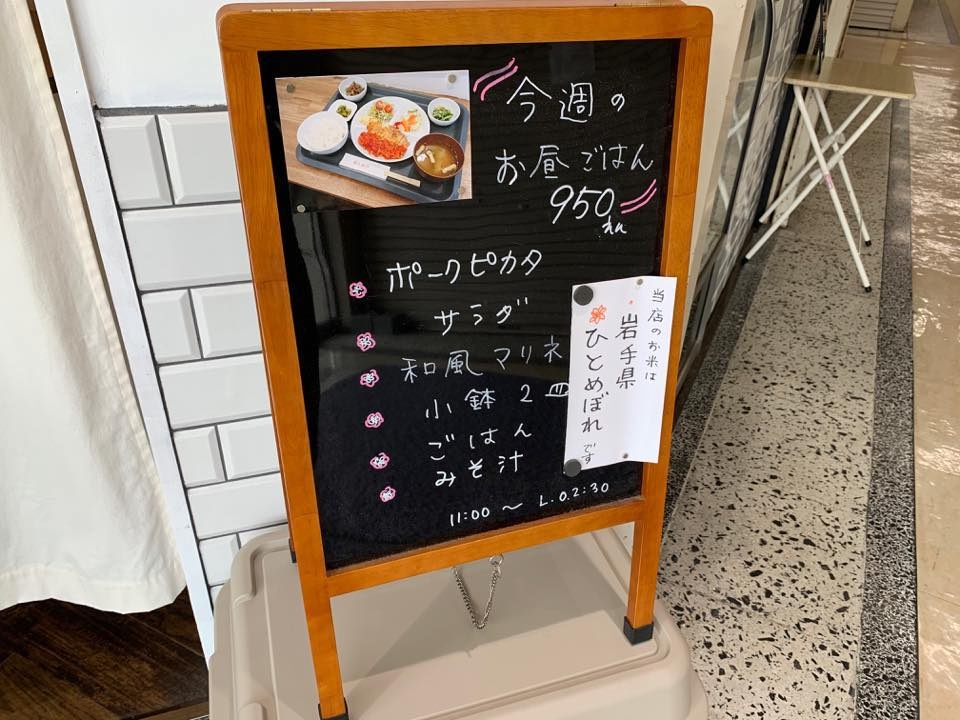 今週の
お昼ごはん
950えん
ポークピカタ
サラダ
和風マリネ
小鉢2皿
ごはん
みそ汁
11:00〜L.O.2:30
当店のお米は
・岩手県
ひとめぼれです